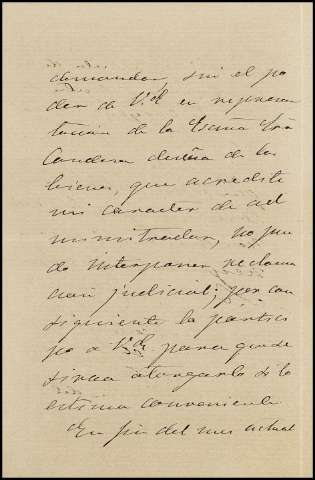 demandar, sin el po
der de Vd en represen
tacion de la Escma Sra
Condesa dueña de los
bienes, que acredite
mi caracter de ad
ministrador, no pue
do interponer reclama
cion judicial; por con
siguiente la partici
po a Vd para que se
sirva otorgarlo si lo
estima conveniente
En fin del mes actual